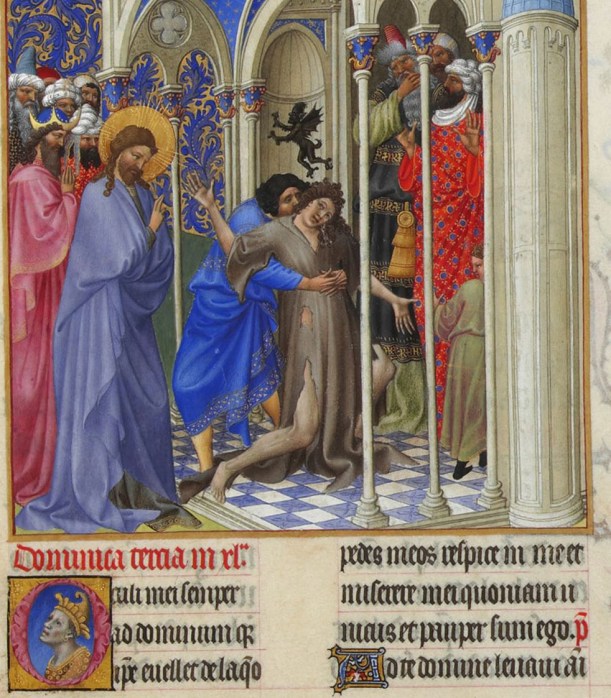 Dominica tercia in xl.ᵃ
Oculi mei semper
ad dominum qr̄
ipe euellet de laqo
pedes meos respice in me et
miserere mei quoniam u
nicus et pauper sum ego. p̄
Ad te domine leuaui ai